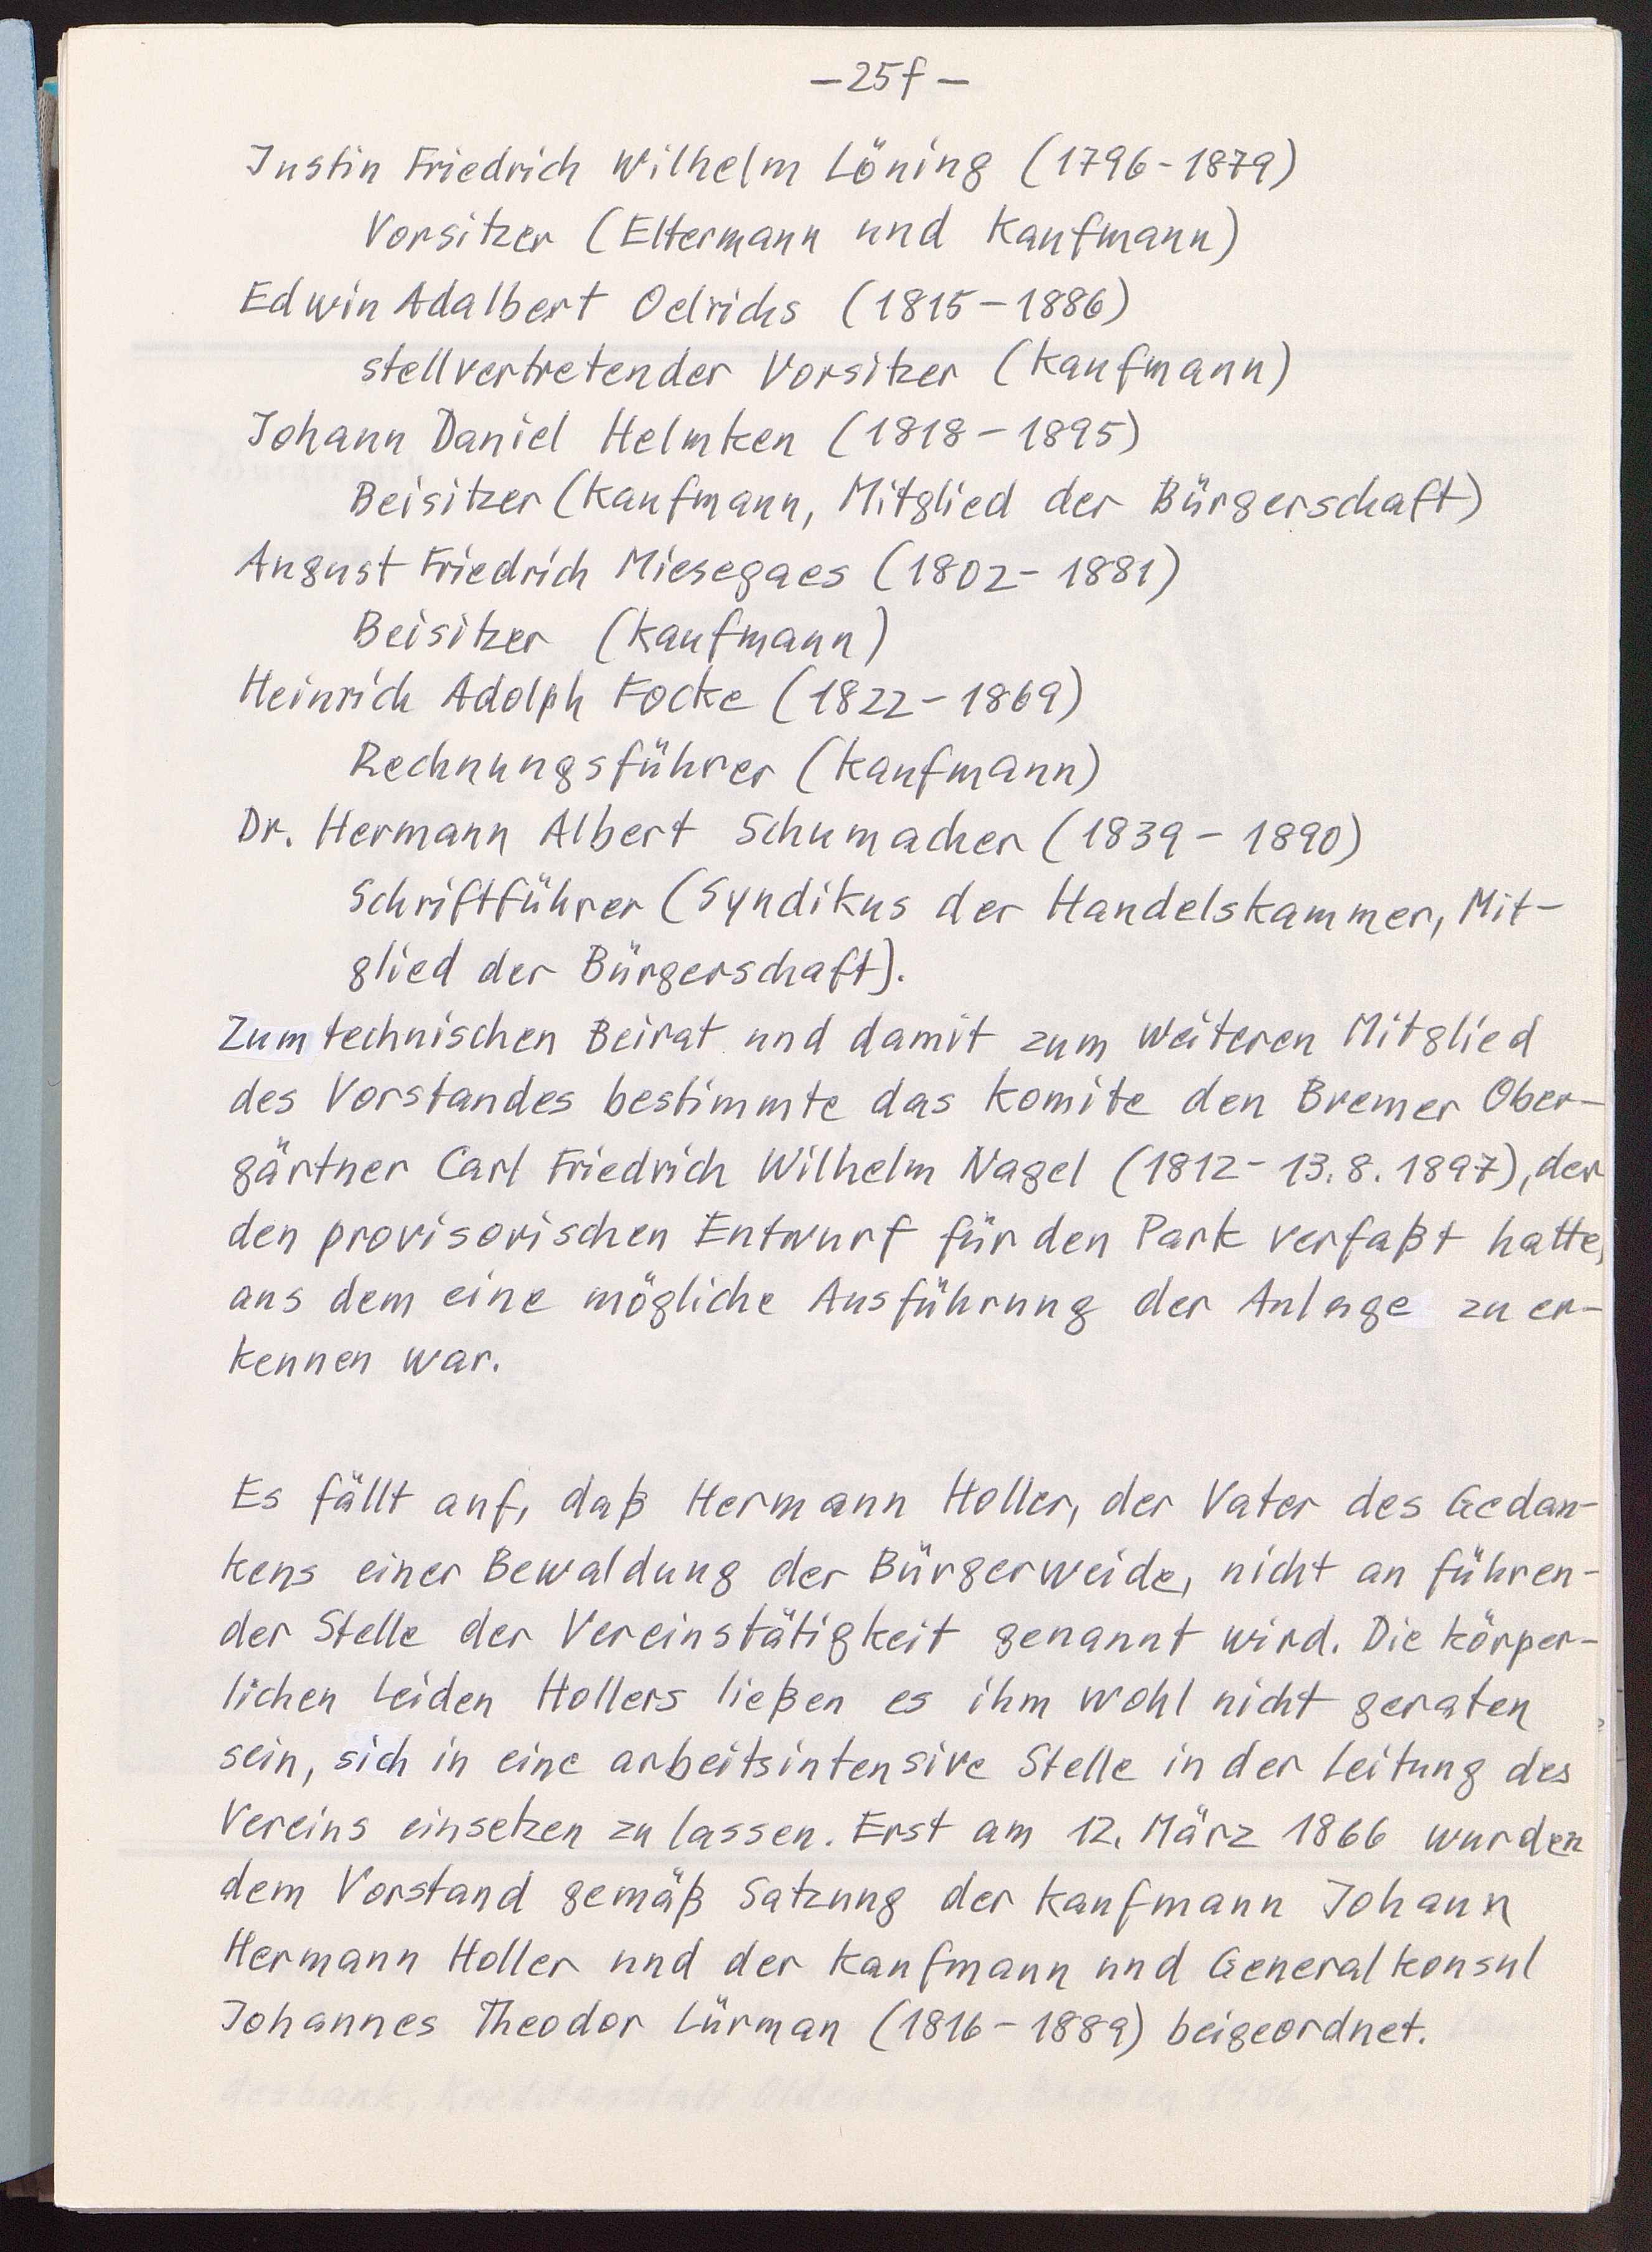 – 25f –
Justin Friedrich Wilhelm Löning (1796-1879)
Vorsitzer (Eltermann und Kaufmann)
Edwin Adalbert Oelrichs (1815-1886)
stellvertretender Vorsitzer (Kaufmann)
Johann Daniel Helmken (1818-1895)
Beisitzer (Kaufmann, Mitglied der Bürgerschaft)
August Friedrich Miesegaes (1802-1881)
Beisitzer (Kaufmann)
Heinrich Adolph Focke (1822-1869)
Rechnungsführer (Kaufmann)
Dr. Hermann Albert Schumacher (1839-1890)
Schriftführer (Syndikus der Handelskammer, Mit-
glied der Bürgerschaft).
Zum technischen Beirat und damit zum weiteren Mitglied
des Vorstandes bestimmte das Komite den Bremer Ober-
gärtner Carl Friedrich Wilhelm Nagel (1812-13.8.1897), der
den provisorischen Entwurf für den Park verfaßt hatte,
aus dem eine mögliche Ausführung der Anlage zu er-
kennen war.
Es fällt auf, daß Hermann Holler, der Vater des Gedan-
kens einer Bewaldung der Bürgerweide, nicht an führen-
der Stelle der Vereinstätigkeit genannt wird. Die körper-
lichen Leiden Hollers ließen es ihm wohl nicht geraten
sein, sich in eine arbeitsintensive Stelle in der Leitung des
Vereins einsetzen zu lassen. Erst am 12. März 1866 wurden
dem Vorstand gemäß Satzung der Kaufmann Johann
Hermann Holler und der Kaufmann und Generalkonsul
Johannes Theodor Lürman (1816-1889) beigeordnet.